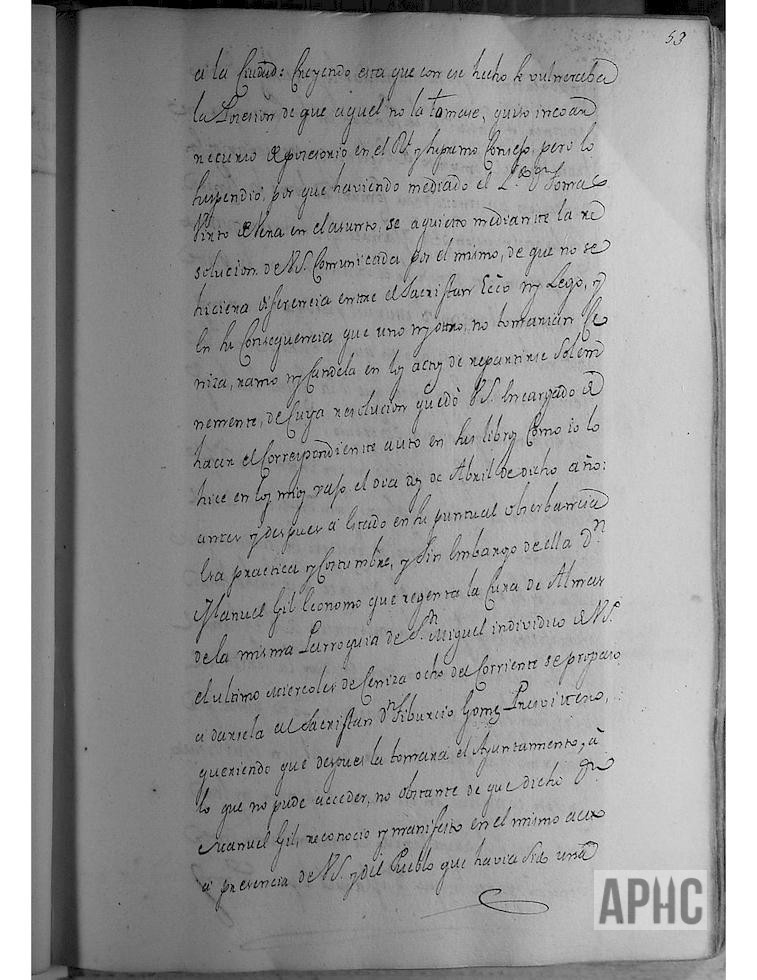 53
a la Ciudad: Creyendo esta que con ese hecho se vulneraba
la Posesion de que aquel no la tomase, quiso incoar
recurso de posesorio en el Rl. y Supremo Consejo, pero lo
suspendio, por que haviendo mediado el Sr. Dn. Tomas
Pinto en el asunto, se aquieto mediante la re
solucion de VS. Comunicada por el mismo, de que no se
hiciera diferencia entre el Sacristan Ecco. ny Lego, y
en su Consequencia que uno ny otro, no tomarian Ce
niza, ramo ny Candela en los actos de repartirse Solem
nemente, de Cuya resolucion quedó VS. Encargado de
hacer el Correspondiente auto en sus libros Como io lo
hice en los mios el dia de Abril de dicho año:
antes y despues a estado en su puntual observancia
esa practica y Costumbre, y Sin Embargo de ella Dn.
Manuel Gil Economo que regenta la Cura de Almas
de la misma Parroquia de Sn. Miguel individuo de VS.
el ultimo Miercoles de Ceniza ocho del Corriente se propaso
a darsela al Sacristan Dn. Tiburcio Gomez Presvitero,
queriendo que despues la tomara el Ayuntamiento, à
lo que no pude acceder, no obstante de que dicho Dn.
Manuel Gil, reconocio y manifesto en el mismo acto
a presencia de VS. y del Pueblo que havia sido una
APHC